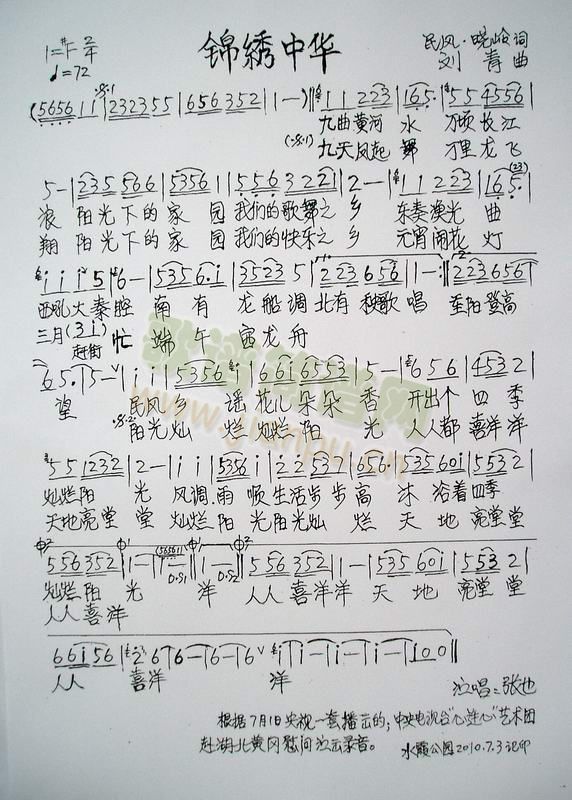 锦绣中华
1=#F 2/4
♩=72
民风·晓岭词
刘青曲
(5656 1 1 | 2323 5 5 | 656 352 | 1 - ) | 1 1 223 | 165· | 5 5 4556 |
九曲黄河 水 万顷长江
九天凤起 舞 万里龙飞
5 - | 235 566 | 5356 1 | 556 3221 | 2 - | 1 1 223 | 165· |
浪 阳光下的家 园 我们的歌舞之 乡 东奏渔光 曲
翔 阳光下的家 园 我们的快乐之 乡 元宵闹花 灯
i i i 5 | 6 - | 535 6·i | 3523 5 | 223 656 | 1 - | 223 656 |
西吼大秦腔 南 有 龙船调 北有 秧歌 唱 重阳登高
三月(3 i)赶街 忙 端 午 赛龙舟
65· | 5 - | i i | 5356 | 66i 6553 | 5 - | 656 | 4532 |
望 民风乡 谣 花儿朵朵 香 开出个 四 季
阳光灿 烂 灿烂阳 光 人人都 喜洋洋
5 5 1232 | 2 - | i i | 5356 i | 2 2 537 | 656· | 535 60i | 5532 |
灿烂阳 光 风调雨 顺生活步步高 沐 浴着四季
天地亮堂 堂 灿烂阳 光阳光灿 烂 天 地 亮堂堂
556352 | 1 - | 1 - | 1 - | 556 352 | 1 - | 535 60i | 553 2 |
灿烂阳 光 洋 人人喜洋洋 天 地 亮堂 堂
人人喜洋
66i56 | 2 6 | 6 - | 6 - | 6 | i - | i - | i - | i - | i00 ‖
人人 喜洋 洋
演唱:张也
根据7月1日央视一套播出的;中央电视台“心连心”艺术团
赴湖北黄冈慰问演出录音。
水霞公园2010.7.3记印